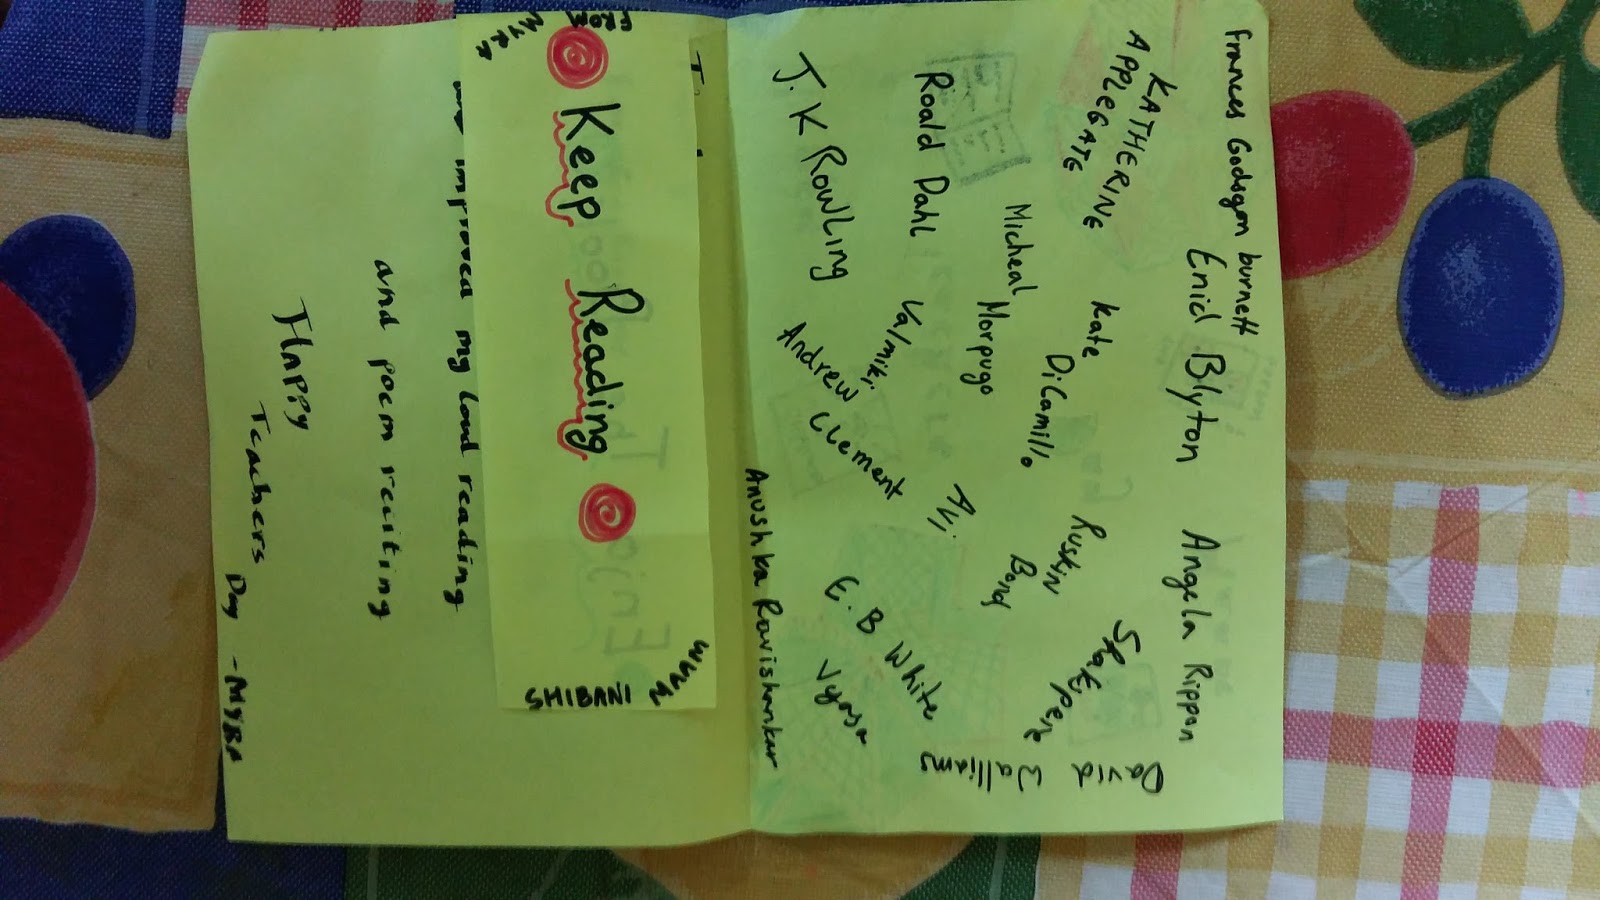 Frances Godsgon burnett
Enid Blyton
Angela Rippon
KATHERINE
APPLEGATE
Kate
DiCamillo
Ruskin
Bond
Shakspere
David
Walliams
Micheal
Morpugo
Roald Dahl
Valmiki
Avi.
E. B White
Vyasa
J. K Rowling
Andrew
Clement
Anushka Ravishankar
FROM
MYRA
Keep Reading
SHIBANI
MAAM
improved my loud reading
and poem reciting
Happy
Teachers
Day -MYRA